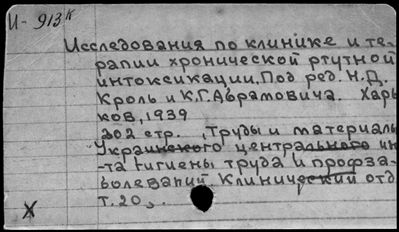 И-913к
Исследования по клинике и те-
рапии хронической ртутной
интоксикации. Под ред. Н.Д.
Кроль и К.Г. Абрамовича. Харь
ков, 1939
202 стр. , Труды и материалы
Украинского центрального ин
-та гигиены труда и профза-
болеваний Клинический отд
т. 20,.
X